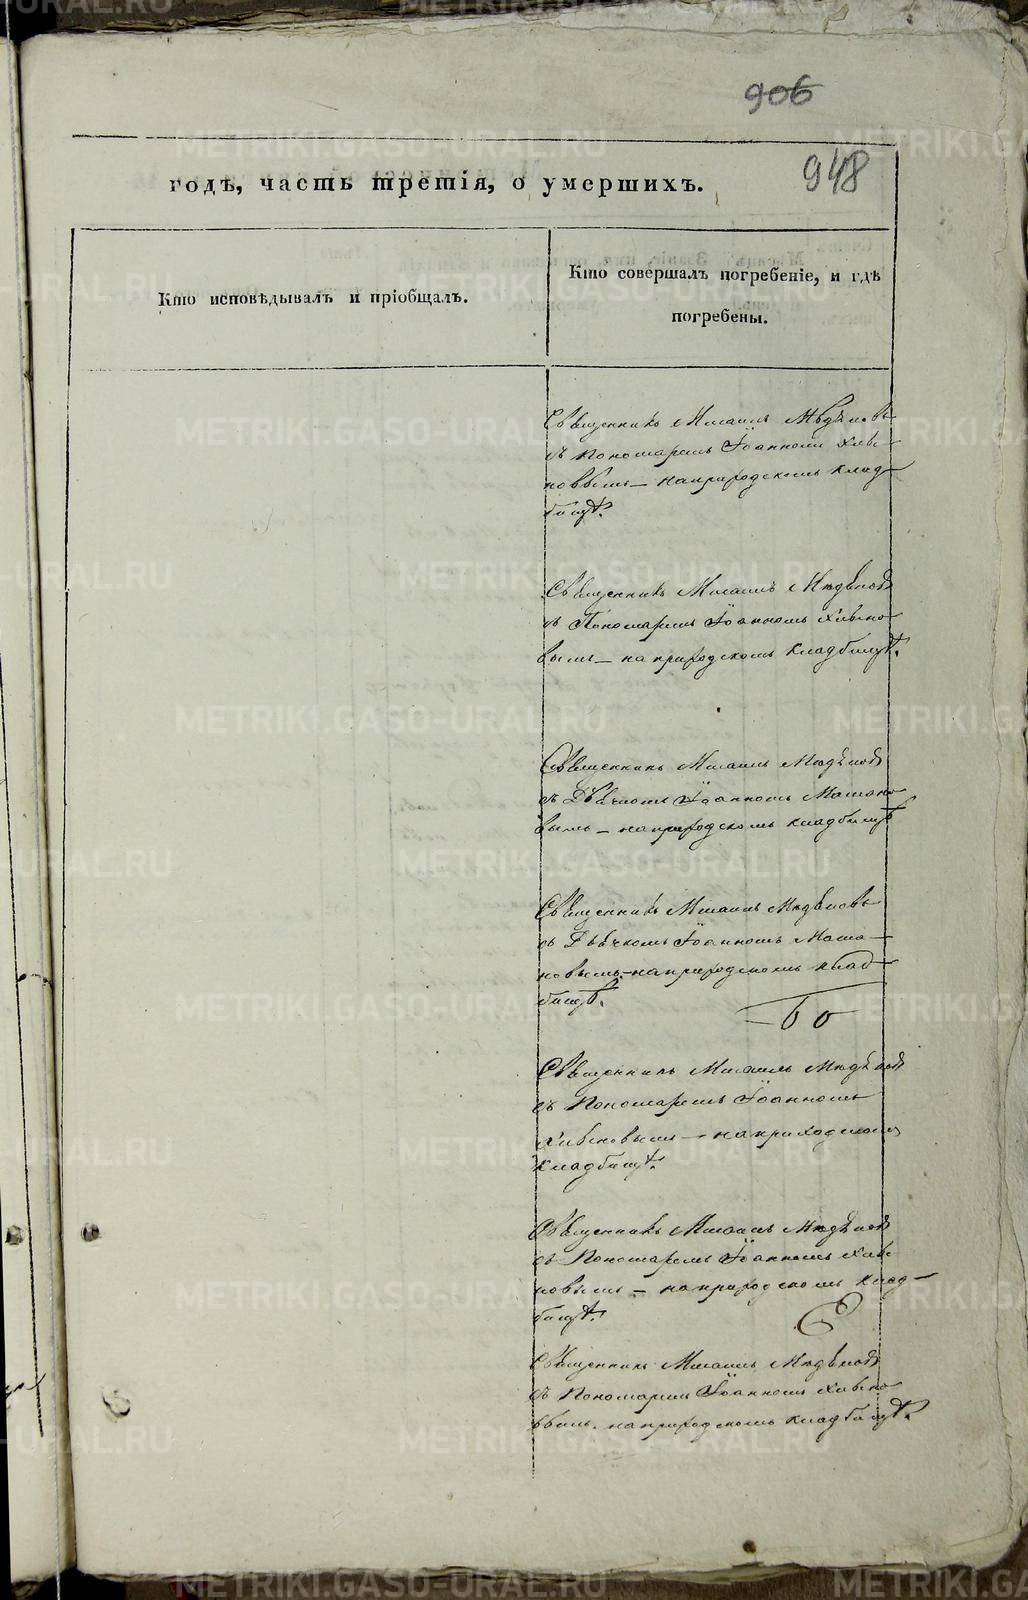 906
948
годъ, часть третія, о умершихъ.
Кто исповѣдывалъ и пріобщалъ.
Кто совершалъ погребеніе, и гдѣ
погребены.
Священникъ Михаилъ
съ Пономаремъ Іоанномъ
на приходскомъ клад-
бищѣ.
Священникъ Михаилъ
съ Пономаремъ Іоанномъ
на приходскомъ кладбищѣ.
Священникъ Михаилъ
съ Дьячкомъ Іоанномъ
на приходскомъ кладбищѣ
Священникъ Михаилъ
съ Дьячкомъ Іоанномъ
на приходскомъ клад-
бищѣ.
Священникъ Михаилъ
съ Пономаремъ Іоанномъ
на приходскомъ
кладбищѣ.
Священникъ Михаилъ
съ Пономаремъ Іоанномъ
на приходскомъ клад-
бищѣ.
Священникъ Михаилъ
съ Пономаремъ Іоанномъ
на приходскомъ кладбищѣ.
METRIKI.GASO-URAL.RU